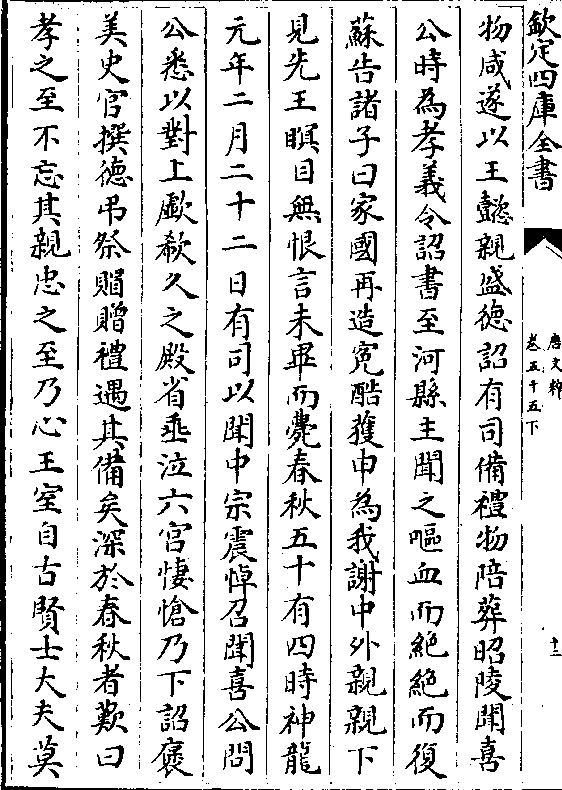 欽定四庫全書
唐文粹
卷五十五下
十二
物咸遂以王懿親盛德詔有司備禮物陪葬昭陵聞喜
公時為孝義令詔書至河縣主聞之嘔血而絶絶而復
蘇告諸子曰家國再造寃酷獲申為我謝中外親親下
見先王瞑目無恨言未畢而薨春秋五十有四時神龍
元年二月二十二日有司以聞中宗震悼召聞喜公問
公悉以對上歔欷久之殿省垂泣六宫悽愴乃下詔褒
美史官撰德弔祭賵贈禮遇其備矣深於春秋者歎曰
孝之至不忘其親忠之至乃心王室自古賢士大夫莫